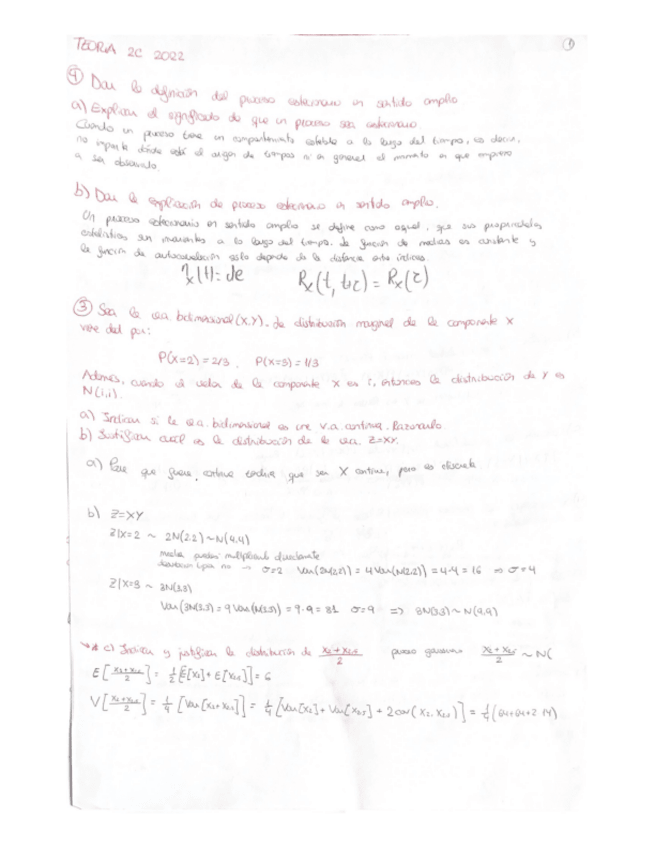 TEORIA 2C 2022
①
④ Dar la definición del proceso estacionario en sentido amplio
a) Explicar el significado de que un proceso sea estacionario.
Cuando un proceso tiene un comportamiento estable a lo largo del tiempo, es decir,
no importa dónde esté el origen de tiempos ni en general el momento en que empiece
a ser observado.
b) Dar la explicación de proceso estacionario en sentido amplio.
Un proceso estacionario en sentido amplio se define como aquel, que sus propiedades
estadísticas son invariantes a lo largo del tiempo. La función de medias es constante y
la función de autocorrelación solo depende de la distancia entre índices.
ηx(t) = de Rx(t, t+τ) = Rx(τ)
③ Sea la v.a. bidimensional (X,Y). La distribución marginal de la componente X
viene del por:
P(X=2) = 2/3 , P(X=3) = 1/3
Además, cuando el valor de la componente X es i, entonces la distribución de Y es
N(i,i).
a) Indicar si la v.a. bidimensional es una v.a. continua. Razonarlo
b) Justificar cual es la distribución de la v.a. Z=XY.
a) Para que fuera continua tendría que ser X continua, pero es discreta
b) Z=XY
Z|X=2 ~ 2N(2,2) ~ N(4,4)
media puedes multiplicarlo directamente
desviación típica no → σ=2 Var(2N(2,2)) = 4Var(N(2,2)) = 4·4 = 16 ⇒ σ=4
Z|X=3 ~ 3N(3,3)
Var(3N(3,3)) = 9Var(N(3,3)) = 9·9 = 81 σ=9 ⇒ 3N(3,3) ~ N(9,9)
c) Indicar y justificar la distribución de proceso gaussiano ~ N(
= 6